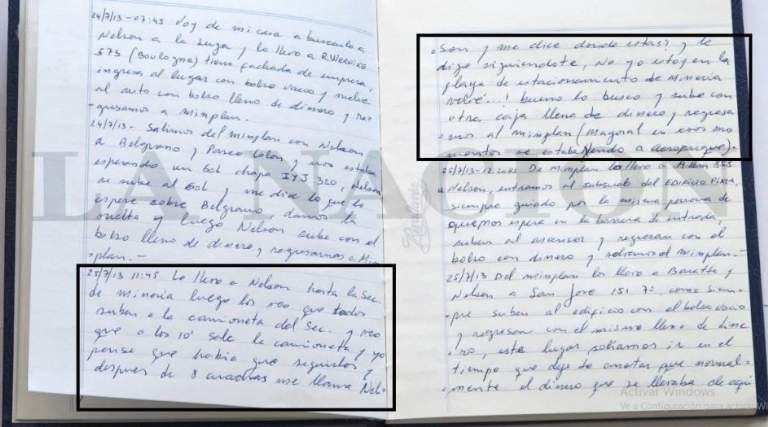 24/7/13 - 07:45 Voy de mi casa a buscarlo a
Nelson a la suya y lo llevo a R. Wernicke
573 (Boulogne) tiene fachada de empresa,
ingresa al lugar con bolso vacio y vuelve
al auto con bolso lleno de dinero y re-
gresamos a minplan.
24/7/13 - Salimos del minplan con Nelson
a Belgrano y Paseo Colon y nos estaba
esperando un Gol chapa 320, Nelson
se sube al Gol y me dice que lo
espere sobre Belgrano, damos la
vuelta y luego Nelson sube con el
bolso lleno de dinero y regresamos a Min
plan. -
25/7/13 11:45 Lo llevo a Nelson hasta la Sec.
de mineria luego los veo que todos
suben a la camioneta del Sec. y veo
que a los 10' sale la camioneta y yo
pense que habia que seguirlos y
despues de 8 cuadras me llama Nel-
son y me dice donde estas? y le
digo siguiendote, No yo estoy en la
playa de estacionamiento de Mineria
volvé...! bueno lo busco y sube con
otra caja llena de dinero y regresa
mos al minplan (Mayoral en esos mo
mentos se estaba yendo a aeroparque)
25/7/13 - De minplan los llevo a Alem
a Nelson, entramos al subsuelo del edificio
siempre guiado por la misma persona
que nos espera en la barrera de entrada,
suben al ascensor y regresan con el
bolso con dinero y volvimos al minplan. -
25/7/13 Del minplan los llevo a Baratta y
Nelson a San José 151 7º, como siem-
pre suben al edificio con el bolso vacio
y regresan con el mismo lleno de dine
ro, este lugar soliamos ir en el
tiempo que deje de anotar que normal-
mente el dinero que se llevaba de aqui
LA NACION
Activar Windows
Ve a Configuración para activar Win